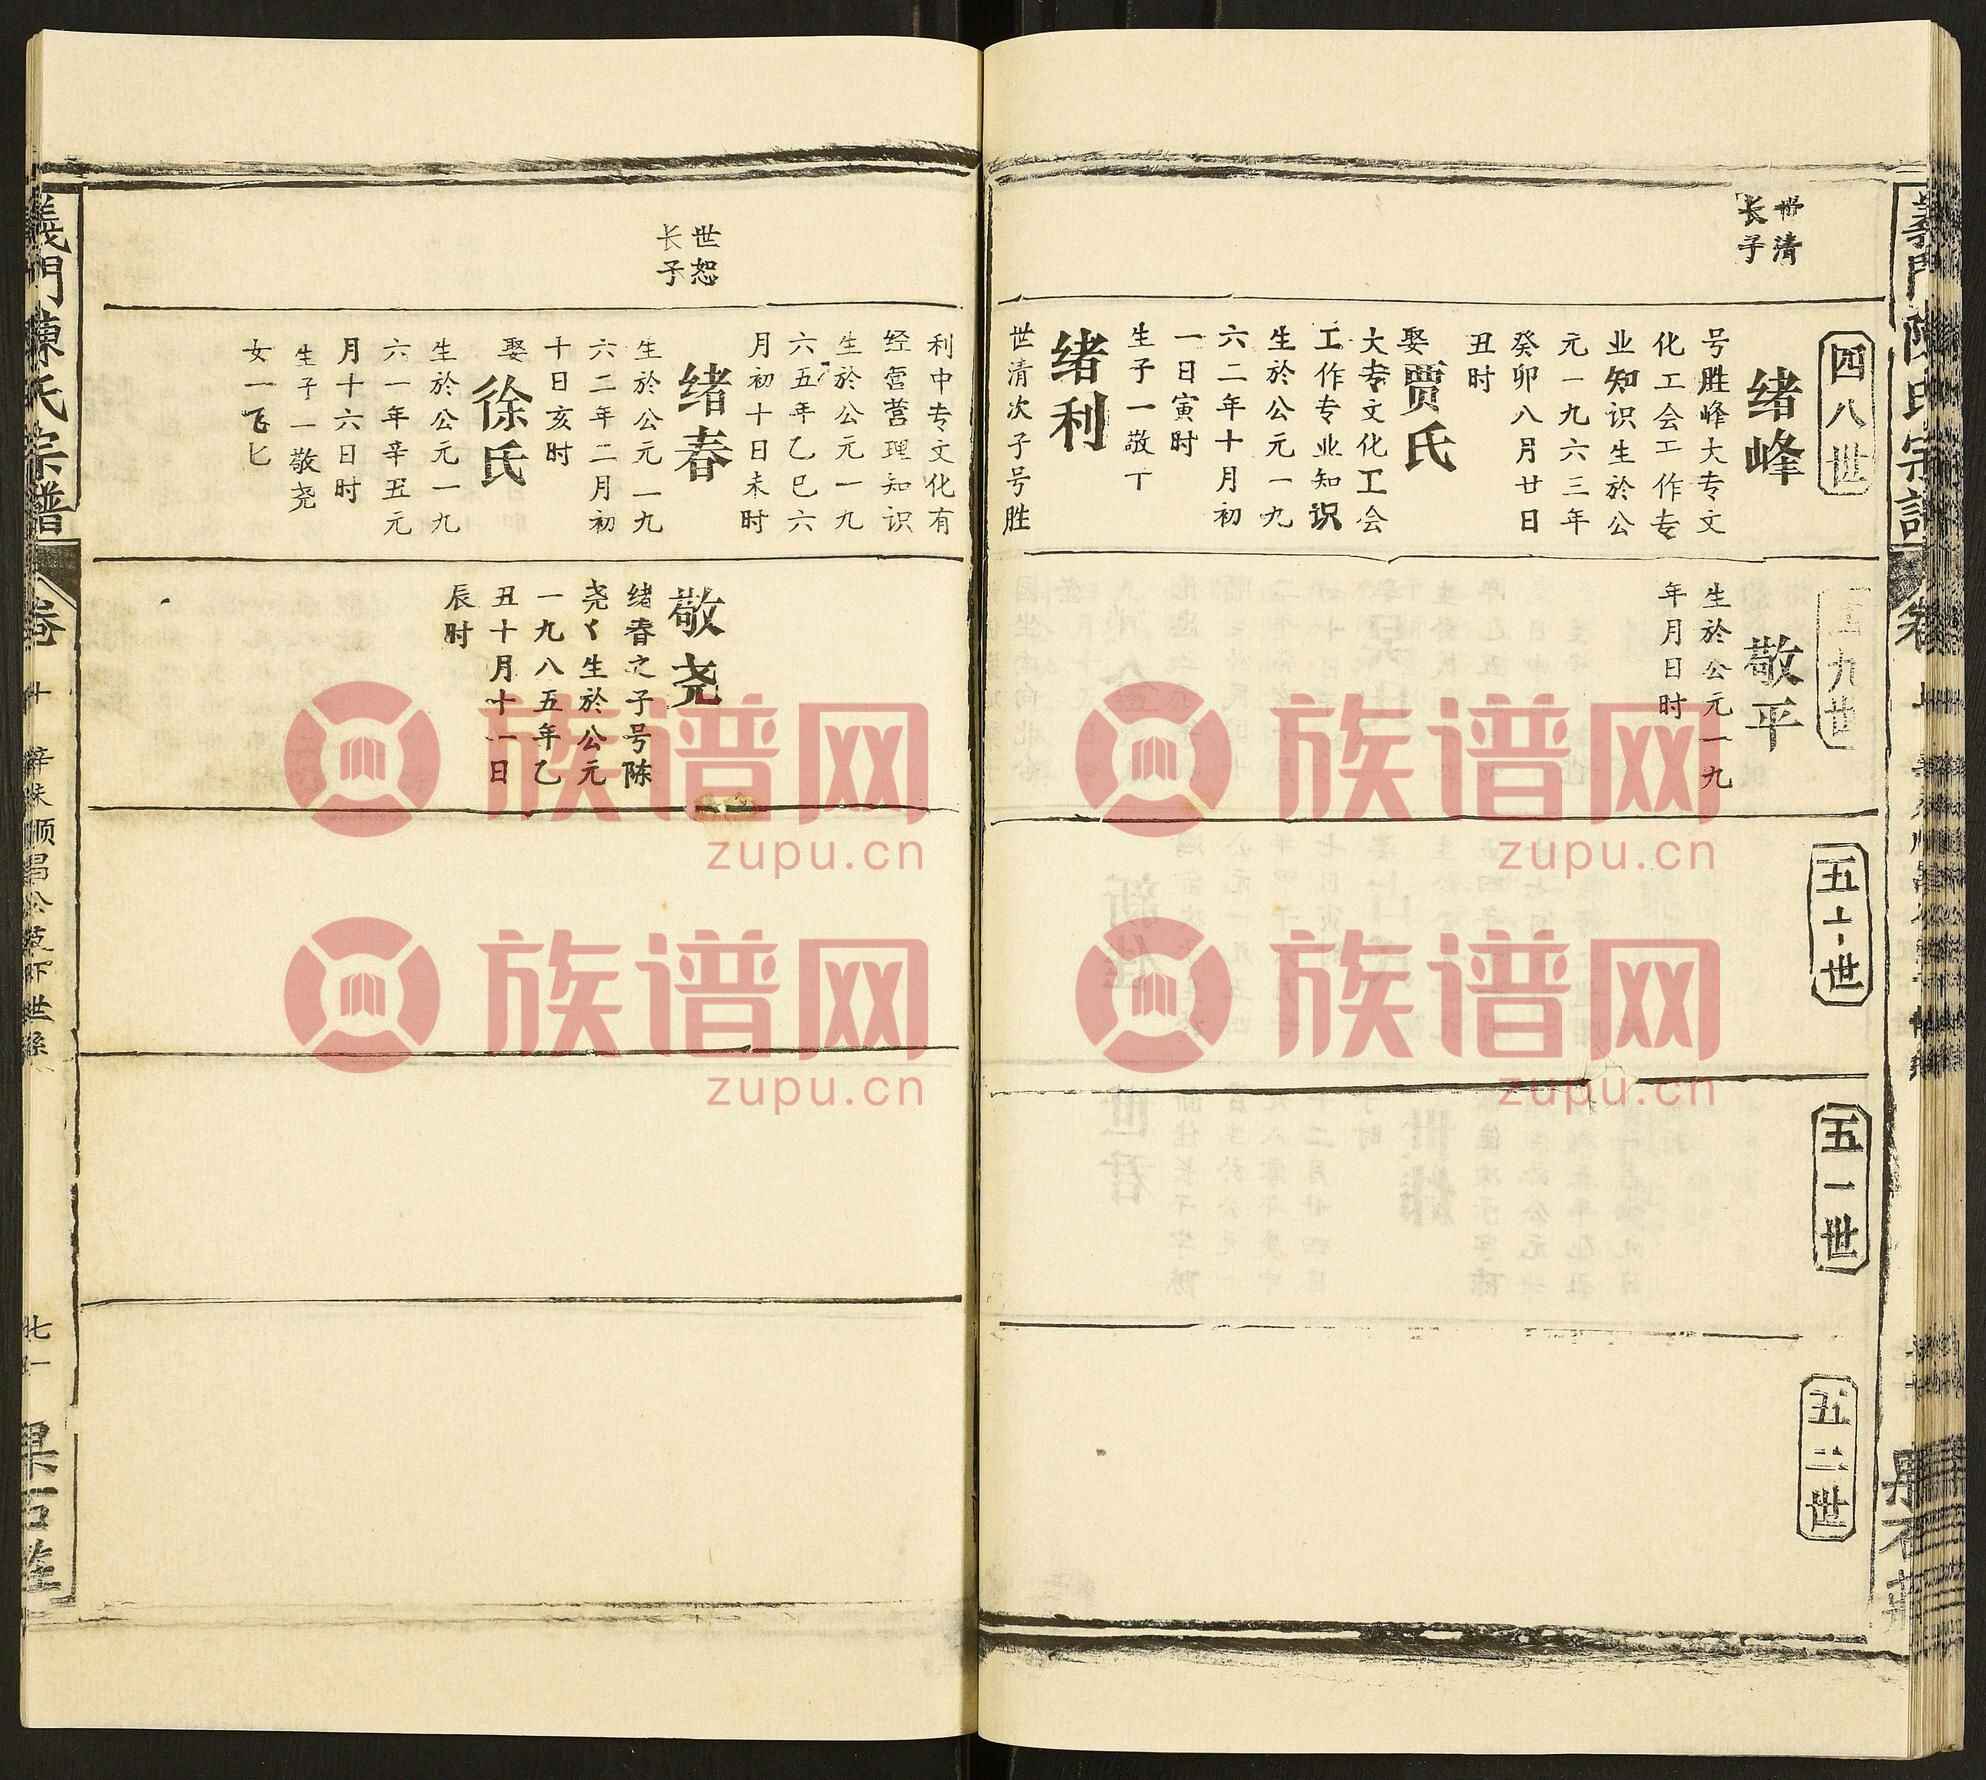 世清
长子
四八世
绪峰
号胜峰大专文
化工会工作专
业知识生於公
元一九六三年
癸卯八月廿日
丑时
娶贾氏
大专文化工会
工作专业知识
生於公元一九
六二年十月初
一日寅时
生子一敬丅
绪利
世清次子号胜
九世
敬平
生於公元一九
年月日时
五十世
五一世
五二世
利中专文化有
经营营理知识
生於公元一九
六五年乙巳六
月初十日未时
世恕
长子
绪春
生於公元一九
六二年二月初
十日亥时
娶徐氏
生於公元一九
六一年辛丑元
月十六日时
生子一敬尧
女一飞匕
敬尧
绪春之子号陈
尧〻生於公元
一九八五年乙
丑十月十一日
辰时
義門陳氏宗譜
卷
十
顺昌公支下世系
果石堂
族谱网
zupu.cn
族谱网
zupu.cn
族谱网
zupu.cn
族谱网
zupu.cn